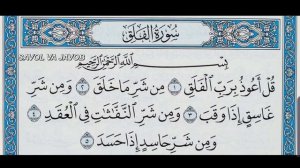 سُورَةُ الفَلَقِ
SAVOL VA JAVOB
بِسْمِ اللَّهِ الرَّحْمَٰنِ الرَّحِيمِ
قُلْ أَعُوذُ بِرَبِّ الْفَلَقِ ١ مِن شَرِّ مَا خَلَقَ ٢ وَمِن شَرِّ
غَاسِقٍ إِذَا وَقَبَ ٣ وَمِن شَرِّ النَّفَّاثَاتِ فِي الْعُقَدِ ٤
وَمِن شَرِّ حَاسِدٍ إِذَا حَسَدَ ٥